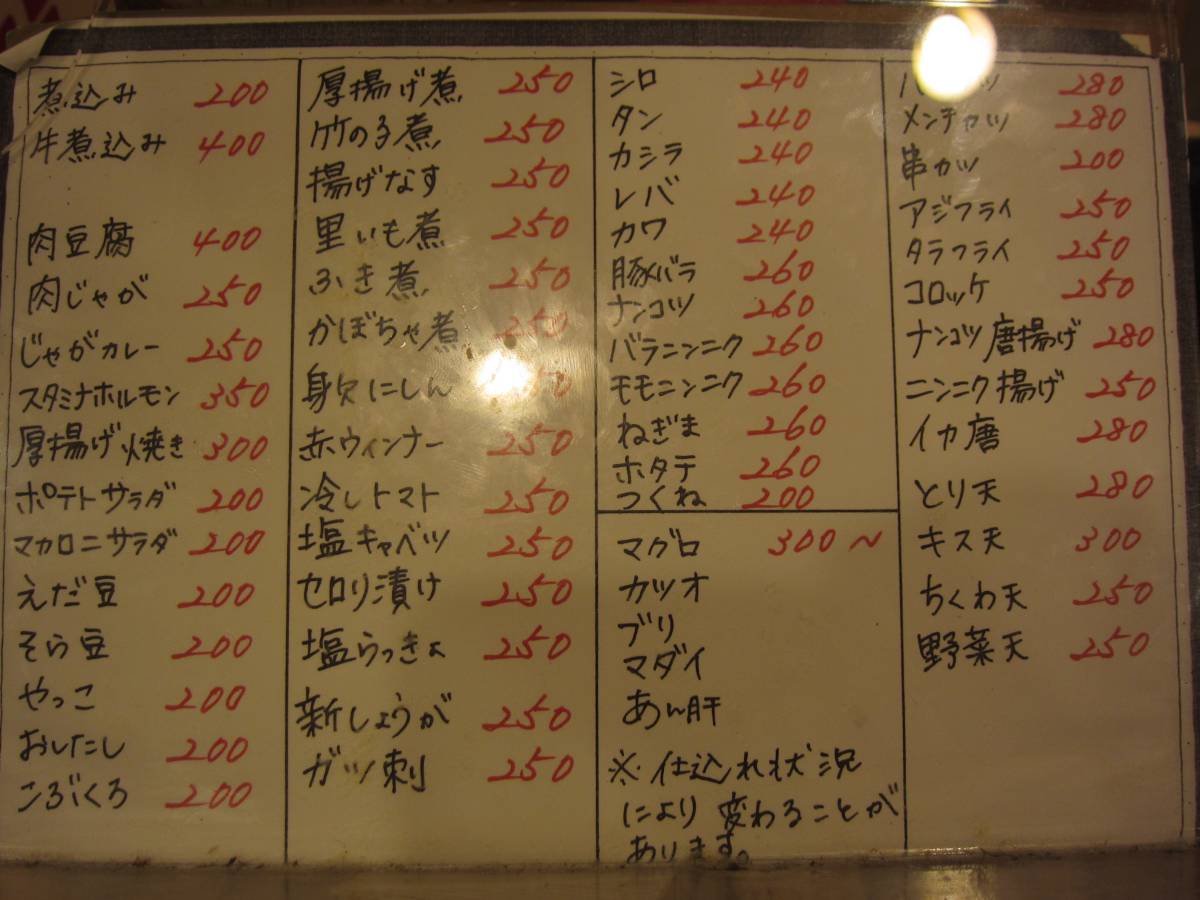 煮込み 200
牛煮込み 400
肉豆腐 400
肉じゃが 250
じゃがカレー 250
スタミナホルモン 350
厚揚げ焼き 300
ポテトサラダ 200
マカロニサラダ 200
えだ豆 200
そら豆 200
やっこ 200
おしたし 200
こぶくろ 200
厚揚げ煮 250
竹の子煮 250
揚げなす 250
里いも煮 250
ふき煮 250
かぼちゃ煮 250
身欠にしん
赤ウィンナー 250
冷しトマト 250
塩キャベツ 250
セロリ漬け 250
塩らっきょ 250
新しょうが 250
ガツ刺 250
シロ 240
タン 240
カシラ 240
レバ 240
カワ 240
豚バラ 260
ナンコツ 260
バラニンニク 260
モモニンニク 260
ねぎま 260
ホタテ 260
つくね 200
マグロ 300〜
カツオ
ブリ
マダイ
あん肝
※仕込れ状況
により変わることが
あります。
280
メンチカツ 280
串カツ 200
アジフライ 250
タラフライ 250
コロッケ 250
ナンコツ唐揚げ 280
ニンニク揚げ 250
イカ唐 280
とり天 280
キス天 300
ちくわ天 250
野菜天 250